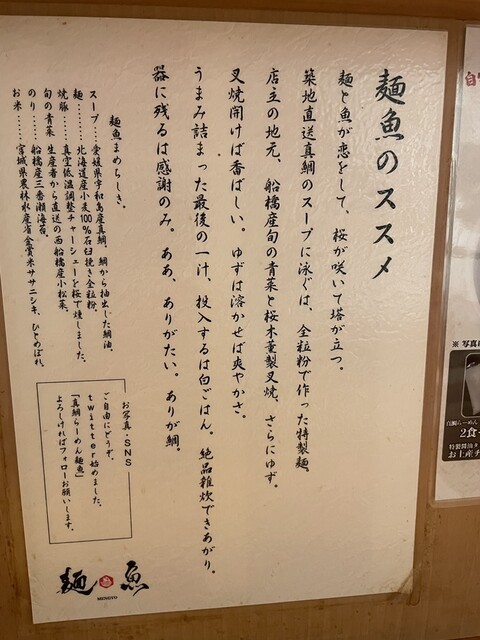 麺魚のススメ
麺と魚が恋をして、桜が咲いて塔が立つ。
築地直送真鯛のスープに泳ぐは、全粒粉で作った特製麺。
店主の地元、船橋産旬の青菜と桜木薫製叉焼、さらにゆず。
叉焼開けば香ばしい。ゆずは溶かせば爽やかさ。
うまみ詰まった最後の一汁、投入するは白ごはん。絶品雑炊できあがり。
器に残るは感謝のみ。ああ、ありがたい。ありが鯛。
麺魚まめちしき。
スープ…愛媛県宇和島産真鯛、鯛から抽出した鯛油。
麺………北海道産小麦100%石臼挽き全粒粉。
焼豚……真空低温調整チャーシューを桜で燻しました。
旬の青菜 生産者から直送の西船橋産小松菜。
のり……船橋産三番瀬海苔。
お米……宮城県農林水産省金賞米ササニシキ、ひとめぼれ。
お写真・SNS
ご自由にどうぞ。
twitter始めました。
「真鯛らーめん麺魚」
よろしければフォローお願いします。
麺魚
MENGYO
※写真
真鯛らーめん
2食
特製醤油
お土産